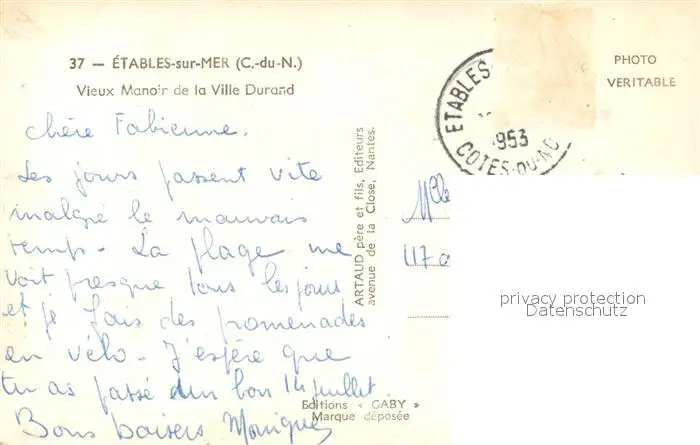 37 — ÉTABLES-sur-MER (C.-du-N.)
Vieux Manoir de la Ville Durand
PHOTO
VERITABLE
ÉTABLES
1953
COTES-DU-NO
chère Fabienne.
Les jours passent vite
malgré le mauvais
temps. La plage me
voit presque tous les jours
et je fais des promenades
en vélo. J'espère que
tu as passé un bon 14 juillet.
Bons baisers Monique
ARTAUD père et fils, Editeurs
avenue de la Close, Nantes.
Mlle
117
privacy protection
Datenschutz
Editions « GABY »
Marque déposée